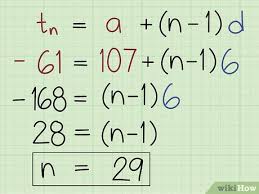 tₙ = a + (n-1)d
- 61 = 107 + (n-1)6
-168 = (n-1)6
28 = (n-1)
n = 29
wikiHow